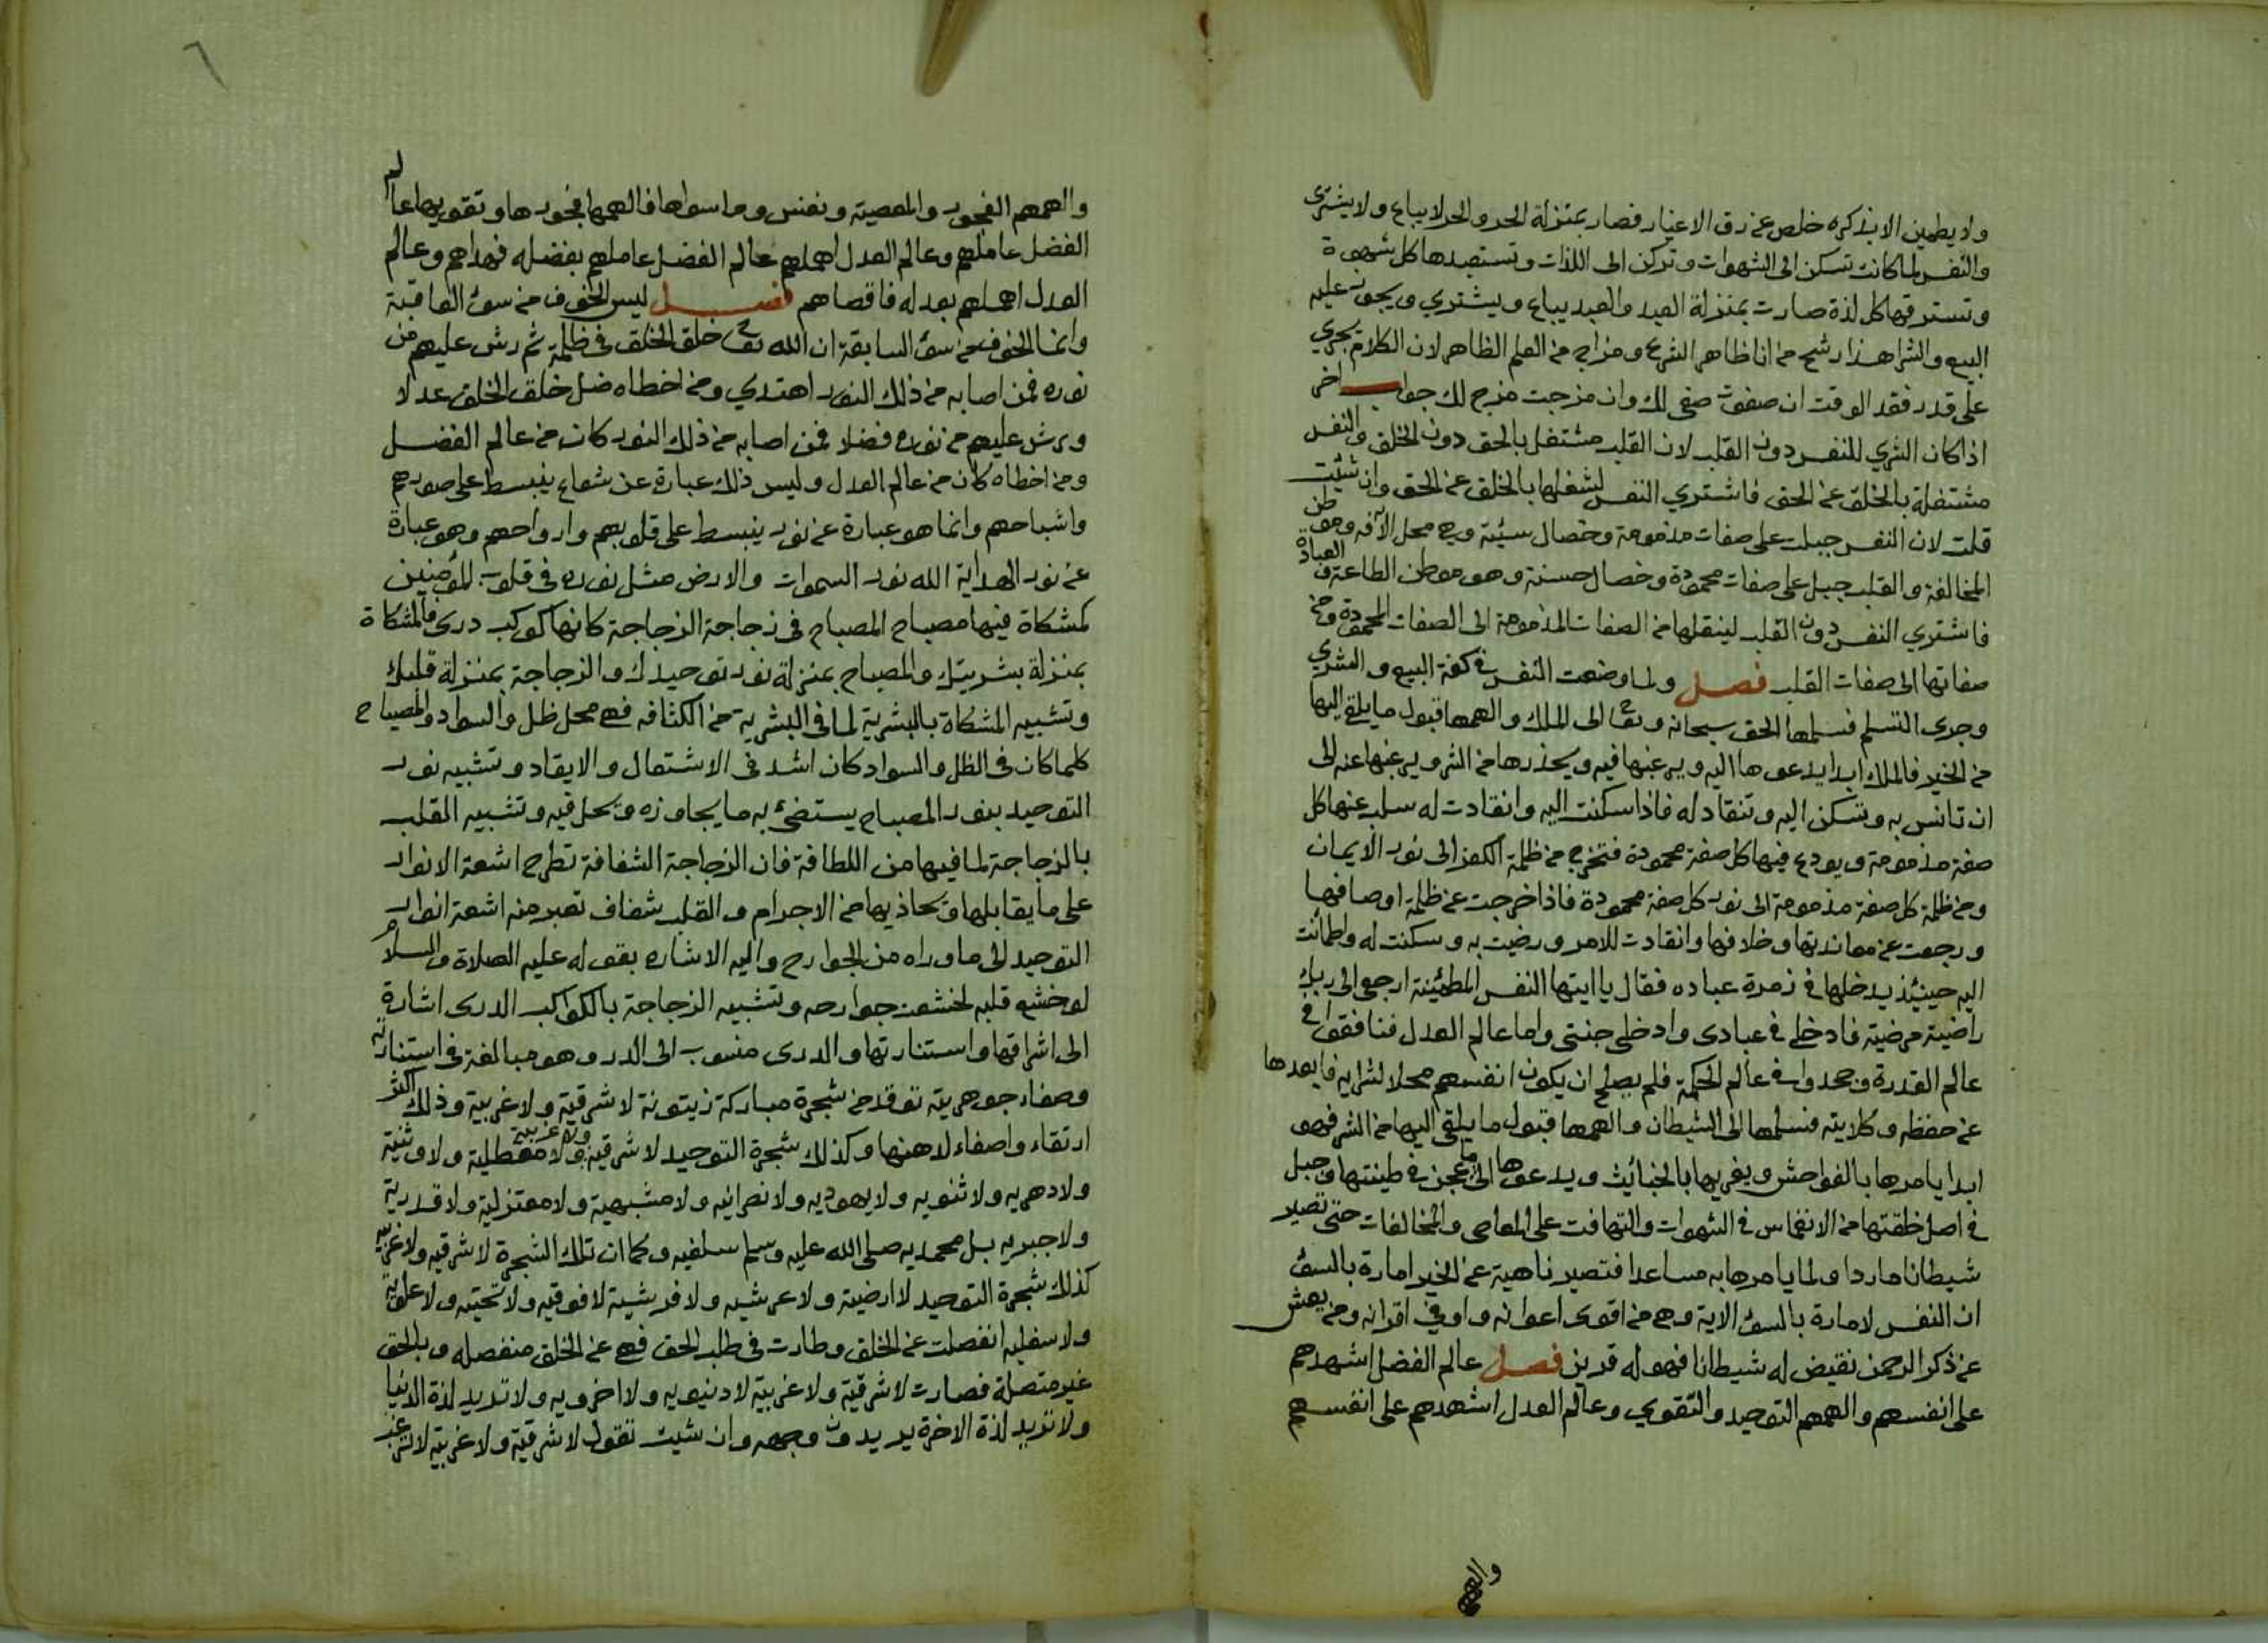 ولا يطمين الا بذكره خلص عن رق الاغيار فصار بمنزلة الحر والحر لا يباع ولا يشترى
والنفس لما كانت تسكن الى الشهوات وتركن الى اللذات وتستعبدها كل شهوة
وتسترقها كل لذة صارت بمنزلة العبد والعبد يباع ويشتري ويجوز عليه
البيع والشرا هذا رشح من انا ظاهر الشرع ومزاج من العلم الظاهر لان الكلام يجري
على قدر فقد الوقت ان صفوت صفى لك وان مزجت مزج لك جواب اخر
اذا كان الشري للنفس دون القلب لان القلب مشتغل بالحق دون الخلق والنفس
مشتغلة بالخلق عن الحق فاشتري النفس لشغلها بالخلق عن الحق وان شئت
قلت لان النفس جبلت على صفات مذمومة وخصال سيئة وهي محل الآفه وموطن
المخالفة والقلب جبل على صفات محمودة وخصال حسنة وهو موطن الطاعة والعبادة
فاشتري النفس دون القلب لينقلها من الصفات المذمومة الى الصفات المحمودة ومن
صفاتها الى صفات القلب فصل ولما وضعت النفس في كفة البيع والشري
وجرى التسلم فسلمها الحق سبحانه وتعا الى الملك والهمها قبول ما يلقى اليها
من الخير فالملك ابدا يدعوها اليه ويرغبها فيه ويحذرها من الشر ويرغبها عنه الى
ان تانس به وتسكن اليه وتنقاد له فاذا سكنت اليه وانقادت له سلب عنها كل
صفة مذمومة ويودع فيها كل صفة محمودة فتخرج من ظلمة الكفر الى نور الايمان
ومن ظلمة كل صفة مذمومة الى نور كل صفة محمودة فاذا خرجت عن ظلمة اوصافها
ورجعت عن معاندتها وخلافها وانقادت للامر ورضيت به وسكنت له واطمأنت
اليه حينئذ يدخلها في زمرة عباده فقال يا ايتها النفس المطئنة ارجعى الى ربك
راضية مرضية فادخلى في عبادى وادخلى جنتى واما عالم العدل فنافقوا في
عالم القدرة وجحدوا في عالم الحكمة فلم يصلح ان يكون انفسهم محلا لشرايه فابعدها
عن حفظه وكلايته فسلمها الى الشيطان والهمها قبول ما يلقى اليها من الشر فهو
ابدا يامرها بالفواحش ويغريها بالخبائث ويدعوها الى ما عجن في طينتها وجبل
في اصل خلقتها من الانغماس في الشهوات والتهافت على المعاصى والمخالفات حتى تصير
شيطانا ماردا ولما يامرها به مساعدا فتصير ناهية عن الخير امارة بالسوء
ان النفس لامارة بالسوء الاية وهى من اقوى اعوانه واوفي اقرانه ومن يعش
عن ذكر الرحمن نقيض له شيطانا فهو له قرين فصل عالم الفضل اشهدهم
على انفسهم والهمهم التوحيد والتقوي وعالم العدل اشهدهم على انفسهم
والهمهم
٦
والهمهم الفجور والمعصية ونفس وما سواها فالهمها فجورها وتقويها عالم
الفضل عاملهم وعالم العدل اهملهم عالم الفضل عاملهم بفضله فهداهم وعالم
العدل اهملهم بعدله فاقصاهم فصل ليس الخوف من سوء العاقبة
وانما الخوف من سوء السابقة ان الله تعا خلق الخلق في ظلمة ثم رش عليهم من
نوره فمن اصابه من ذلك النور اهتدي ومن اخطاه ضل خلق الخلق عدلا
ورش عليهم من نوره فضلا فمن اصابه من ذلك النور كان من عالم الفضل
ومن اخطاه كان من عالم العدل وليس ذلك عبارة عن شعاع ينبسط على صورهم
واشباحهم وانما هو عبارة عن نور ينبسط على قلوبهم وارواحهم وهو عبارة
عن نور الهداية الله نور السموات والارض مثل نوره في قلوب المؤمنين
كمشكاة فيها مصباح المصباح في زجاجة الزجاجة كانها كوكب درى فالمشكاة
بمنزلة بشريتك والمصباح بمنزلة نور توحيدك والزجاجة بمنزلة قلبك
وتشبيه المشكاة بالبشرية لما في البشرية من الكثافه فهى محل ظل والسواد والمصباح
كلما كان في الظل والسواد كان اشد في الاشتعال والايقاد وتشبيه نور
التوحيد بنور المصباح يستضئ به ما يجاوزه ويحل فيه وتشبيه القلب
بالزجاجة لما فيها من اللطافة فان الزجاجة الشفافة تطرح اشعة الانوار
على ما يقابلها ويحاذيها من الاجرام والقلب شفاف تعبر منه اشعة انوار
التوحيد الى ما وراه من الجوارح واليه الاشاره بقوله عليه الصلاة والسلام
لو خشع قلبه لخشعت جوارحه وتشبيه الزجاجة بالكواكب الدرى اشارة
الى اشراقها واستنارتها والدرى منسوب الى الدر وهو مبالغة في استنارته
وصفاء جوهريته توقد من شجرة مباركة زيتونة لا شرقية ولا غربية وذلك اكثر
ارتقاء واصفاء لدهنها وكذلك شجرة التوحيد لا شرقية ولا غربية ولا معطلية ولا وثنية
ولا دهريه ولا ثنويه ولا يهوديه ولا نصرانيه ولا مشبهية ولا معتزلية ولا قدرية
ولا جبريه بل محمديه صلى الله عليه وسلم سلفيه وكما ان تلك الشجرة لا شرقيه ولا غربيه
كذلك شجرة التوحيد لا ارضية ولا عرشيه ولا فرشية لا فوقيه ولا تحتيه ولا علوية
ولا سفليه انفصلت عن الخلق وطارت في طلب الحق فهى عن الخلق منفصله وبالحق
غير متصلة فصارت لا شرقية ولا غربية لا دنيويه ولا اخرويه ولا تريد لذة الدنيا
ولا تريد لذة الاخرة يريدون وجهه وان شيت تقول لا شرقية ولا غربية لا